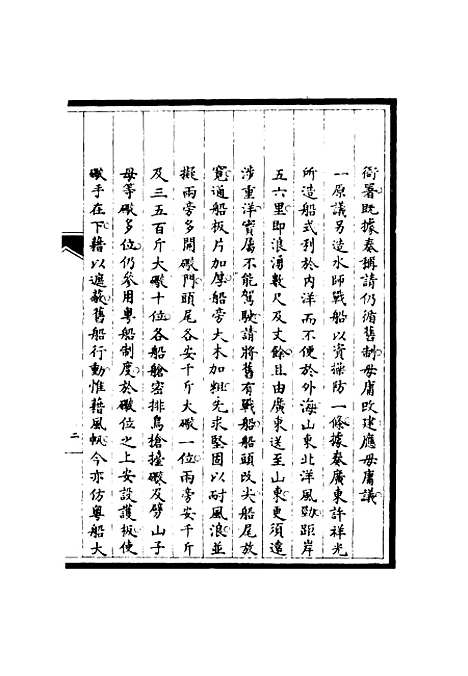 衙署既據奏稱請仍循舊制毋庸改建應毋庸議
一原議另造水師戰船以資操防一條據奏廣東許祥光
所造船式利於内洋而不便於外海山東北洋風勁距岸
五六里即浪湧數尺及丈餘且由廣東送至山東更須遠
涉重洋實屬不能駕駛請將舊有戰船船頭改尖船尾放
寛通船板片加厚船旁大木加粗先求堅固以耐風浪並
擬兩旁多開礮門頭尾各安千斤大礮一位兩旁安千斤
及三五百斤大礮十位各船艙密排鳥槍擡礮及劈山子
母等礮多位仍參用粵船制度於礮位之上安設護板使
礮手在下藉以遮蔽舊船行動惟藉風帆今亦仿粵船大
二